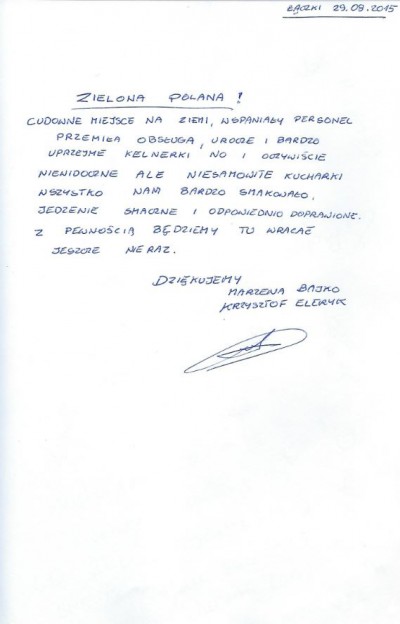 ŁĄCZKI 29.09.2015
ZIELONA POLANA!
CUDOWNE MIEJSCE NA ZIEMI, WSPANIAŁY PERSONEL
PRZEMIŁA OBSŁUGA, UROCZE I BARDZO
UPRZEJME KELNERKI NO I OCZYWIŚCIE
NIEWIDOCZNE ALE NIESAMOWITE KUCHARKI
WSZYSTKO NAM BARDZO SMAKOWAŁO,
JEDZENIE SMACZNE I ODPOWIEDNIO DOPRAWIONE.
Z PEWNOŚCIĄ BĘDZIEMY TU WRACAĆ
JESZCZE NIE RAZ.
DZIĘKUJEMY
MARZENA BAJKO
KRZYSZTOF ELERYK